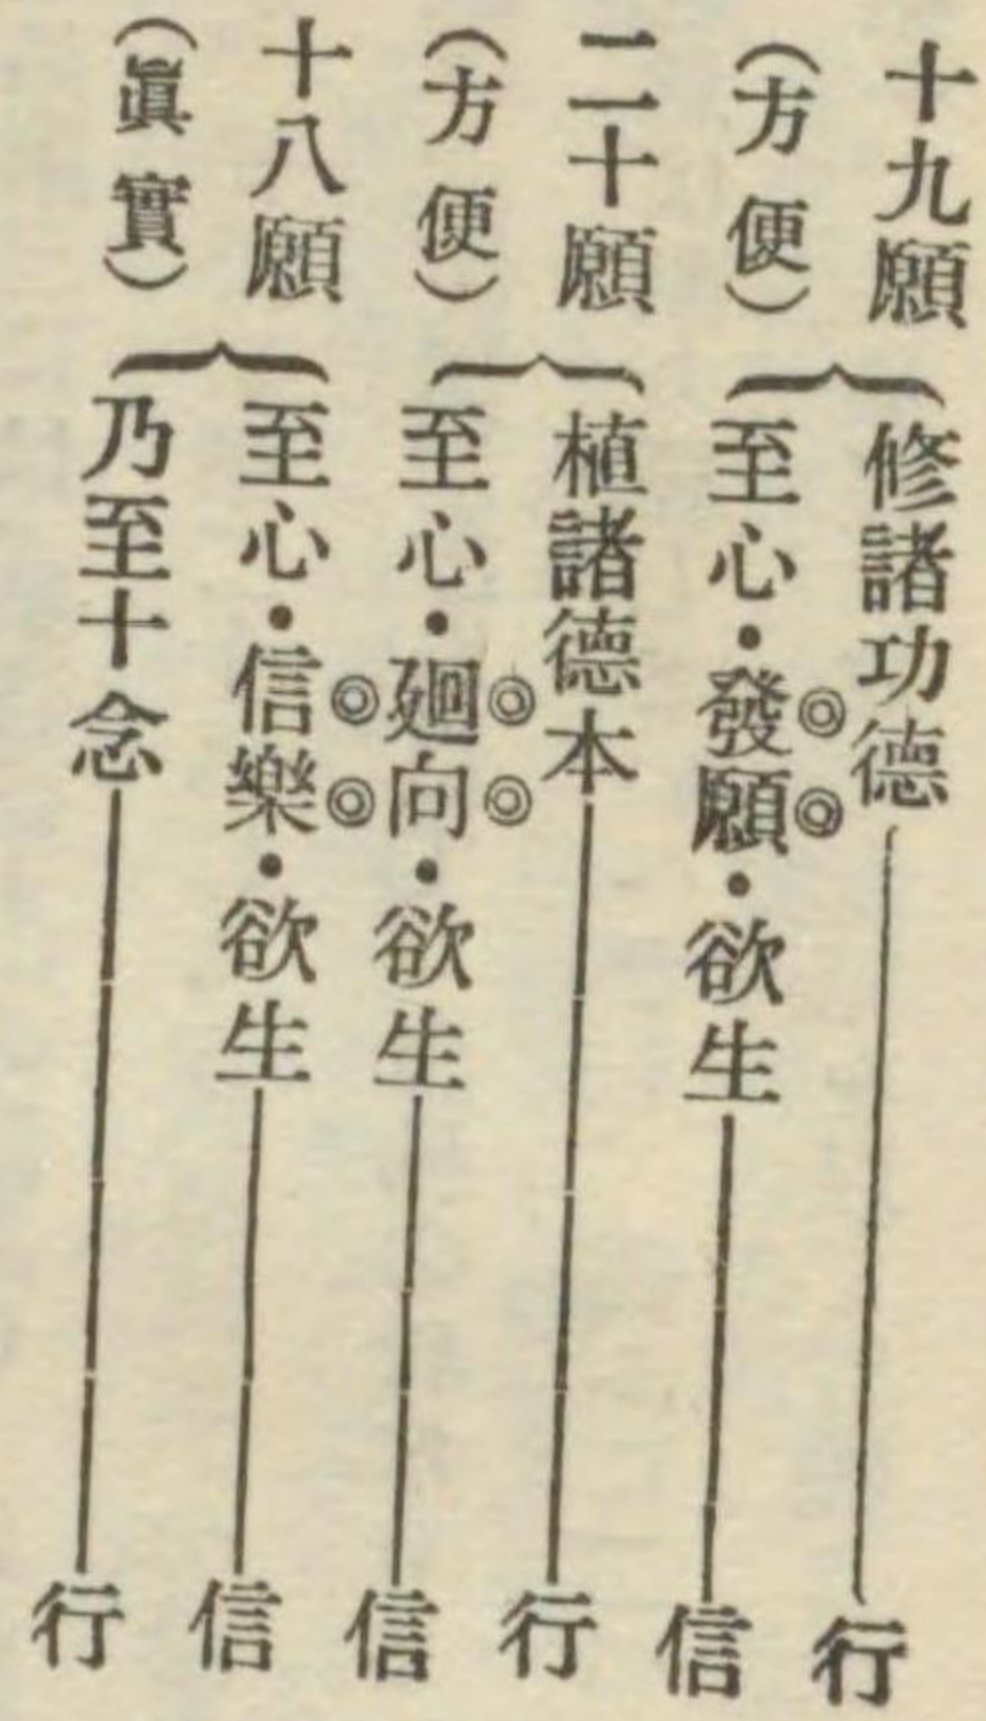 十九願
(方便)
修諸功德
行
至心・發願・欲生
信
二十願
(方便)
植諸德本
行
至心・廻向・欲生
信
十八願
(眞實)
至心・信樂・欲生
信
乃至十念
行